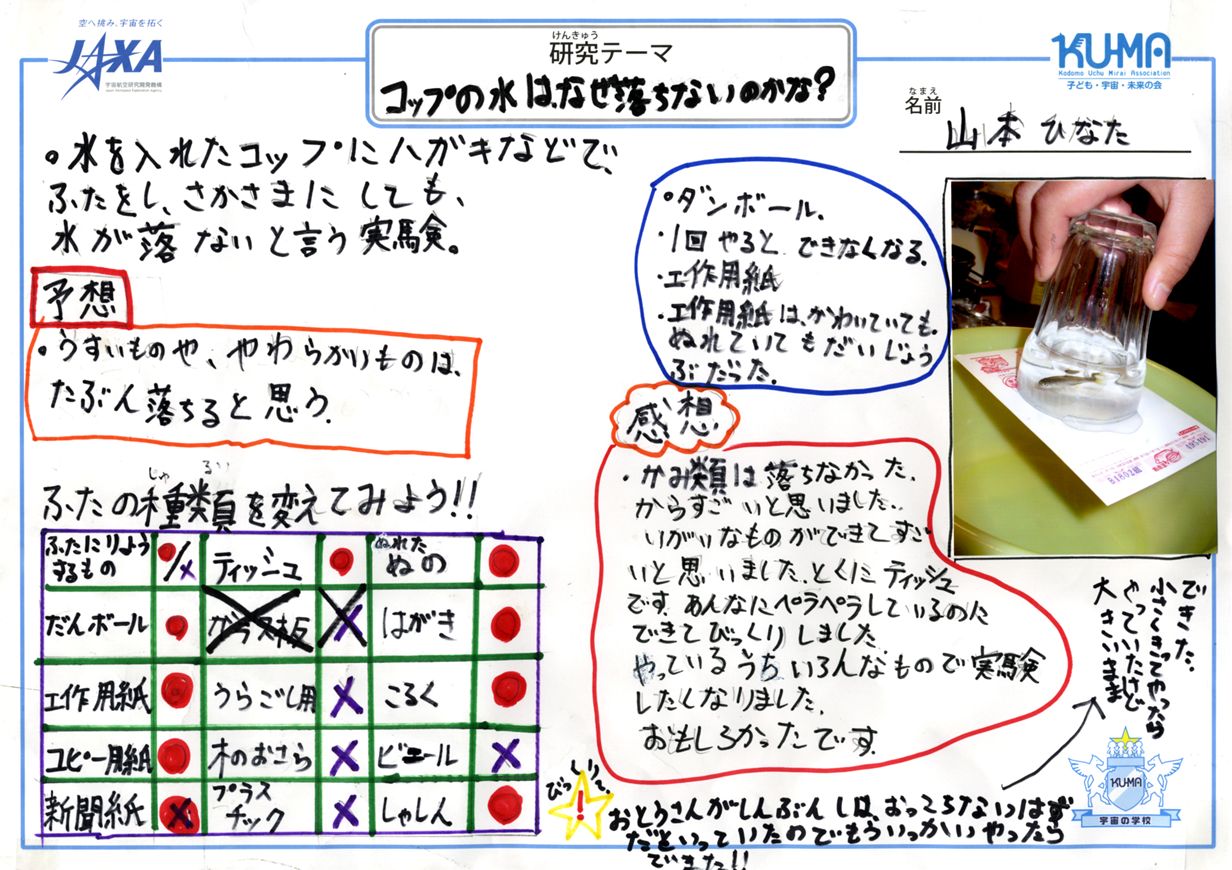 空へ挑み、宇宙を拓く
JAXA
宇宙航空研究開発機構
Japan Aerospace Exploration Agency
けんきゅう
研究テーマ
コップの水は、なぜ落ちないのかな?
KU-MA
Kodomo Uchu Mirai Association
子ども・宇宙・未来の会
なまえ
名前
山本 ひなた
。水を入れたコップにハガキなどで、
ふたをし、さかさまにしても、
水が落ないと言う実験。
予想
・うすいものや、やわらかいものは、
たぶん落ちると思う.
しゅ るい
ふたの種類を変えてみよう!!
ふたにりよう
するもの
/x
ティッシュ
ぬれた
ぬの
だんボール
ガラス板
X
はがき
工作用紙
うらごし用
X
こるく
コピー用紙
木のおさら
X
ビニール
X
新聞紙
X
プラス
チック
X
しゃしん
。ダンボール.
・1回やると、できなくなる.
・工作用紙
・工作用紙は、かわいていても.
ぬれていてもだいじょう
ぶだった.
感想
・かみ類は落ちなかった.
からすごいと思いました.
いがいなものができてすご
いと思いました.とくにティッシュ
です.あんなにペラペラしているのに
できてびっくりしました.
やっているうちいろんなもので実験
したくなりました.
おもしろかったです.
大きいまま
やっていたけど
小さくきってやったら
できた.
びっくりで、
!
おとうさんがしんぶんしは、おっこちないはず
だといっていたのでもういっかいやったら
できた!!
KU-MA
宇宙の学校